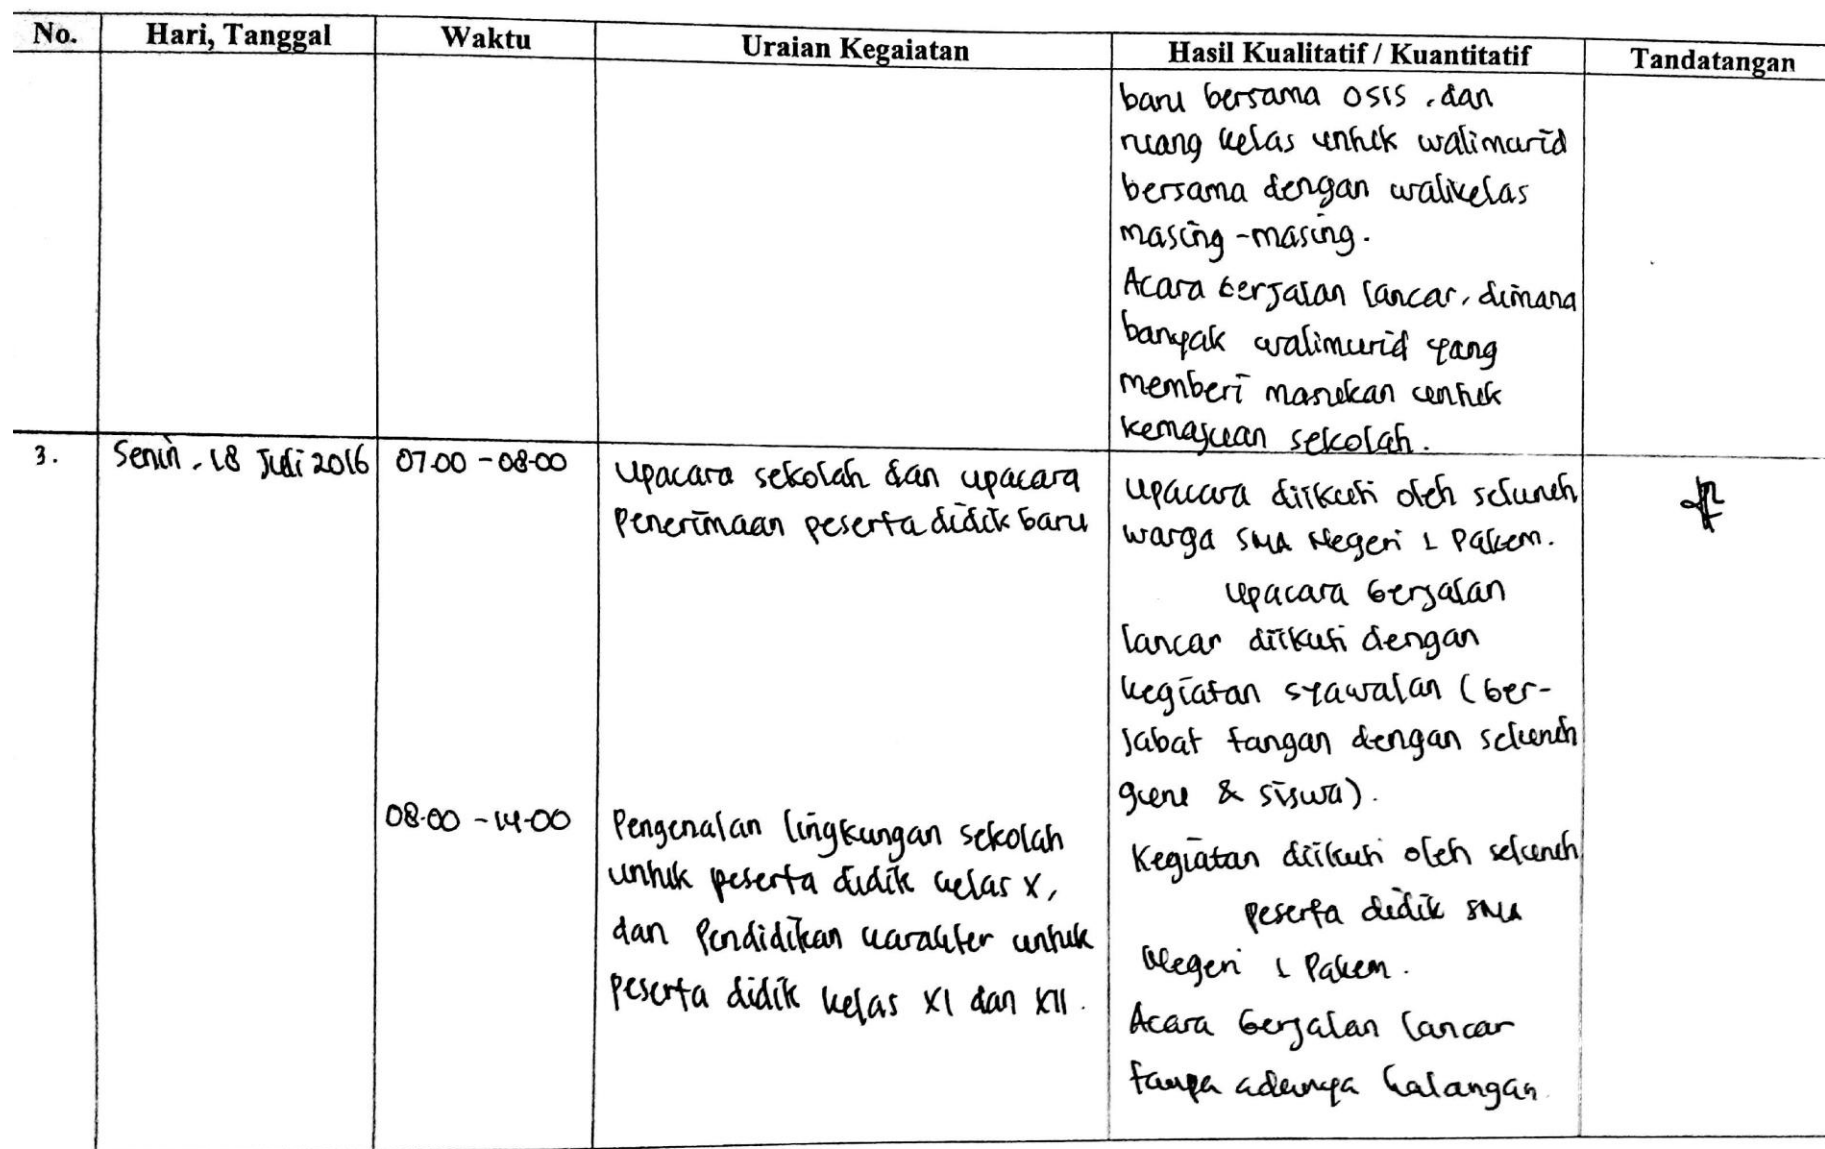 No. Hari, Tanggal Waktu Uraian Kegaiatan Hasil Kualitatif / Kuantitatif Tandatangan
baru bersama OSIS, dan
ruang kelas untuk walimurid
bersama dengan walikelas
masing-masing.
Acara berjalan lancar, dimana
banyak walimurid yang
memberi masukan untuk
kemajuan sekolah.
3. Senin, 18 Juli 2016 07.00 - 08.00
Upacara sekolah dan upacara
Penerimaan peserta didik baru
Upacara diikuti oleh seluruh
warga SMA Negeri 1 Pakem.
Upacara berjalan
lancar diikuti dengan
kegiatan syawalan (ber-
jabat tangan dengan seluruh
guru & siswa).
08.00 - 14.00
Pengenalan lingkungan sekolah
untuk peserta didik kelas X,
dan Pendidikan karakter untuk
peserta didik kelas XI dan XII.
Kegiatan diikuti oleh seluruh
peserta didik SMA
Negeri 1 Pakem.
Acara berjalan lancar
tanpa adanya halangan.